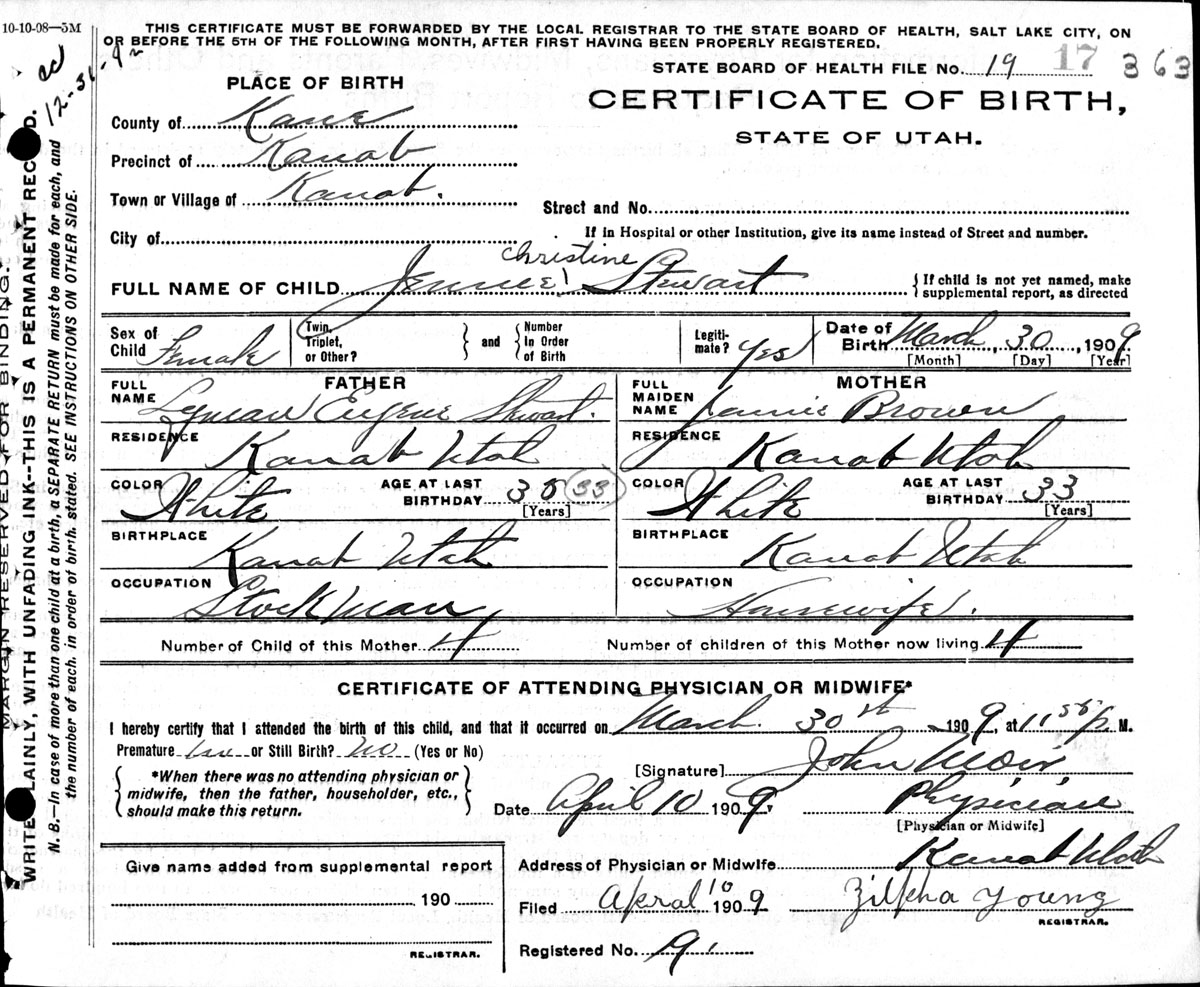 10-10-08—5M
THIS CERTIFICATE MUST BE FORWARDED BY THE LOCAL REGISTRAR TO THE STATE BOARD OF HEALTH, SALT LAKE CITY, ON
OR BEFORE THE 5TH OF THE FOLLOWING MONTH, AFTER FIRST HAVING BEEN PROPERLY REGISTERED.
STATE BOARD OF HEALTH FILE No. 19 17 363
PLACE OF BIRTH
CERTIFICATE OF BIRTH,
STATE OF UTAH.
County of Kane
Precinct of Kanab
Town or Village of Kanab.
Street and No.
City of
If in Hospital or other Institution, give its name instead of Street and number.
Christine
FULL NAME OF CHILD Jennie Stewart
If child is not yet named, make
supplemental report, as directed
Sex of Child Female
Twin, Triplet, or Other?
and
Number In Order of Birth
Legiti-mate? Yes
Date of Birth March, 30, 1909
[Month] [Day] [Year]
FATHER
FULL NAME Lyman Eugene Stewart.
RESIDENCE Kanab Utah
COLOR White
AGE AT LAST BIRTHDAY 30 (33)
[Years]
BIRTHPLACE Kanab Utah
OCCUPATION Stockman
MOTHER
FULL MAIDEN NAME Jennie Brown
RESIDENCE Kanab Utah
COLOR White
AGE AT LAST BIRTHDAY 33
[Years]
BIRTHPLACE Kanab Utah
OCCUPATION Housewife.
Number of Child of this Mother 4
Number of children of this Mother now living 4
CERTIFICATE OF ATTENDING PHYSICIAN OR MIDWIFE*
I hereby certify that I attended the birth of this child, and that it occurred on March 30th 1909, at 11 55 p M.
Premature or Still Birth? No (Yes or No)
*When there was no attending physician or
midwife, then the father, householder, etc.,
should make this return.
[Signature] John Moir
Date April 10 1909. Physician
[Physician or Midwife]
Give name added from supplemental report
190
REGISTRAR.
Address of Physician or Midwife Kanab Utah
Filed Apral 10 1909 Zilpha Young
REGISTRAR.
Registered No. 19
MARGIN RESERVED FOR BINDING.
WRITE PLAINLY, WITH UNFADING INK--THIS IS A PERMANENT RECORD.
N. B.—In case of more than one child at a birth, a SEPARATE RETURN must be made for each, and
the number of each, in order of birth, stated. SEE INSTRUCTIONS ON OTHER SIDE.